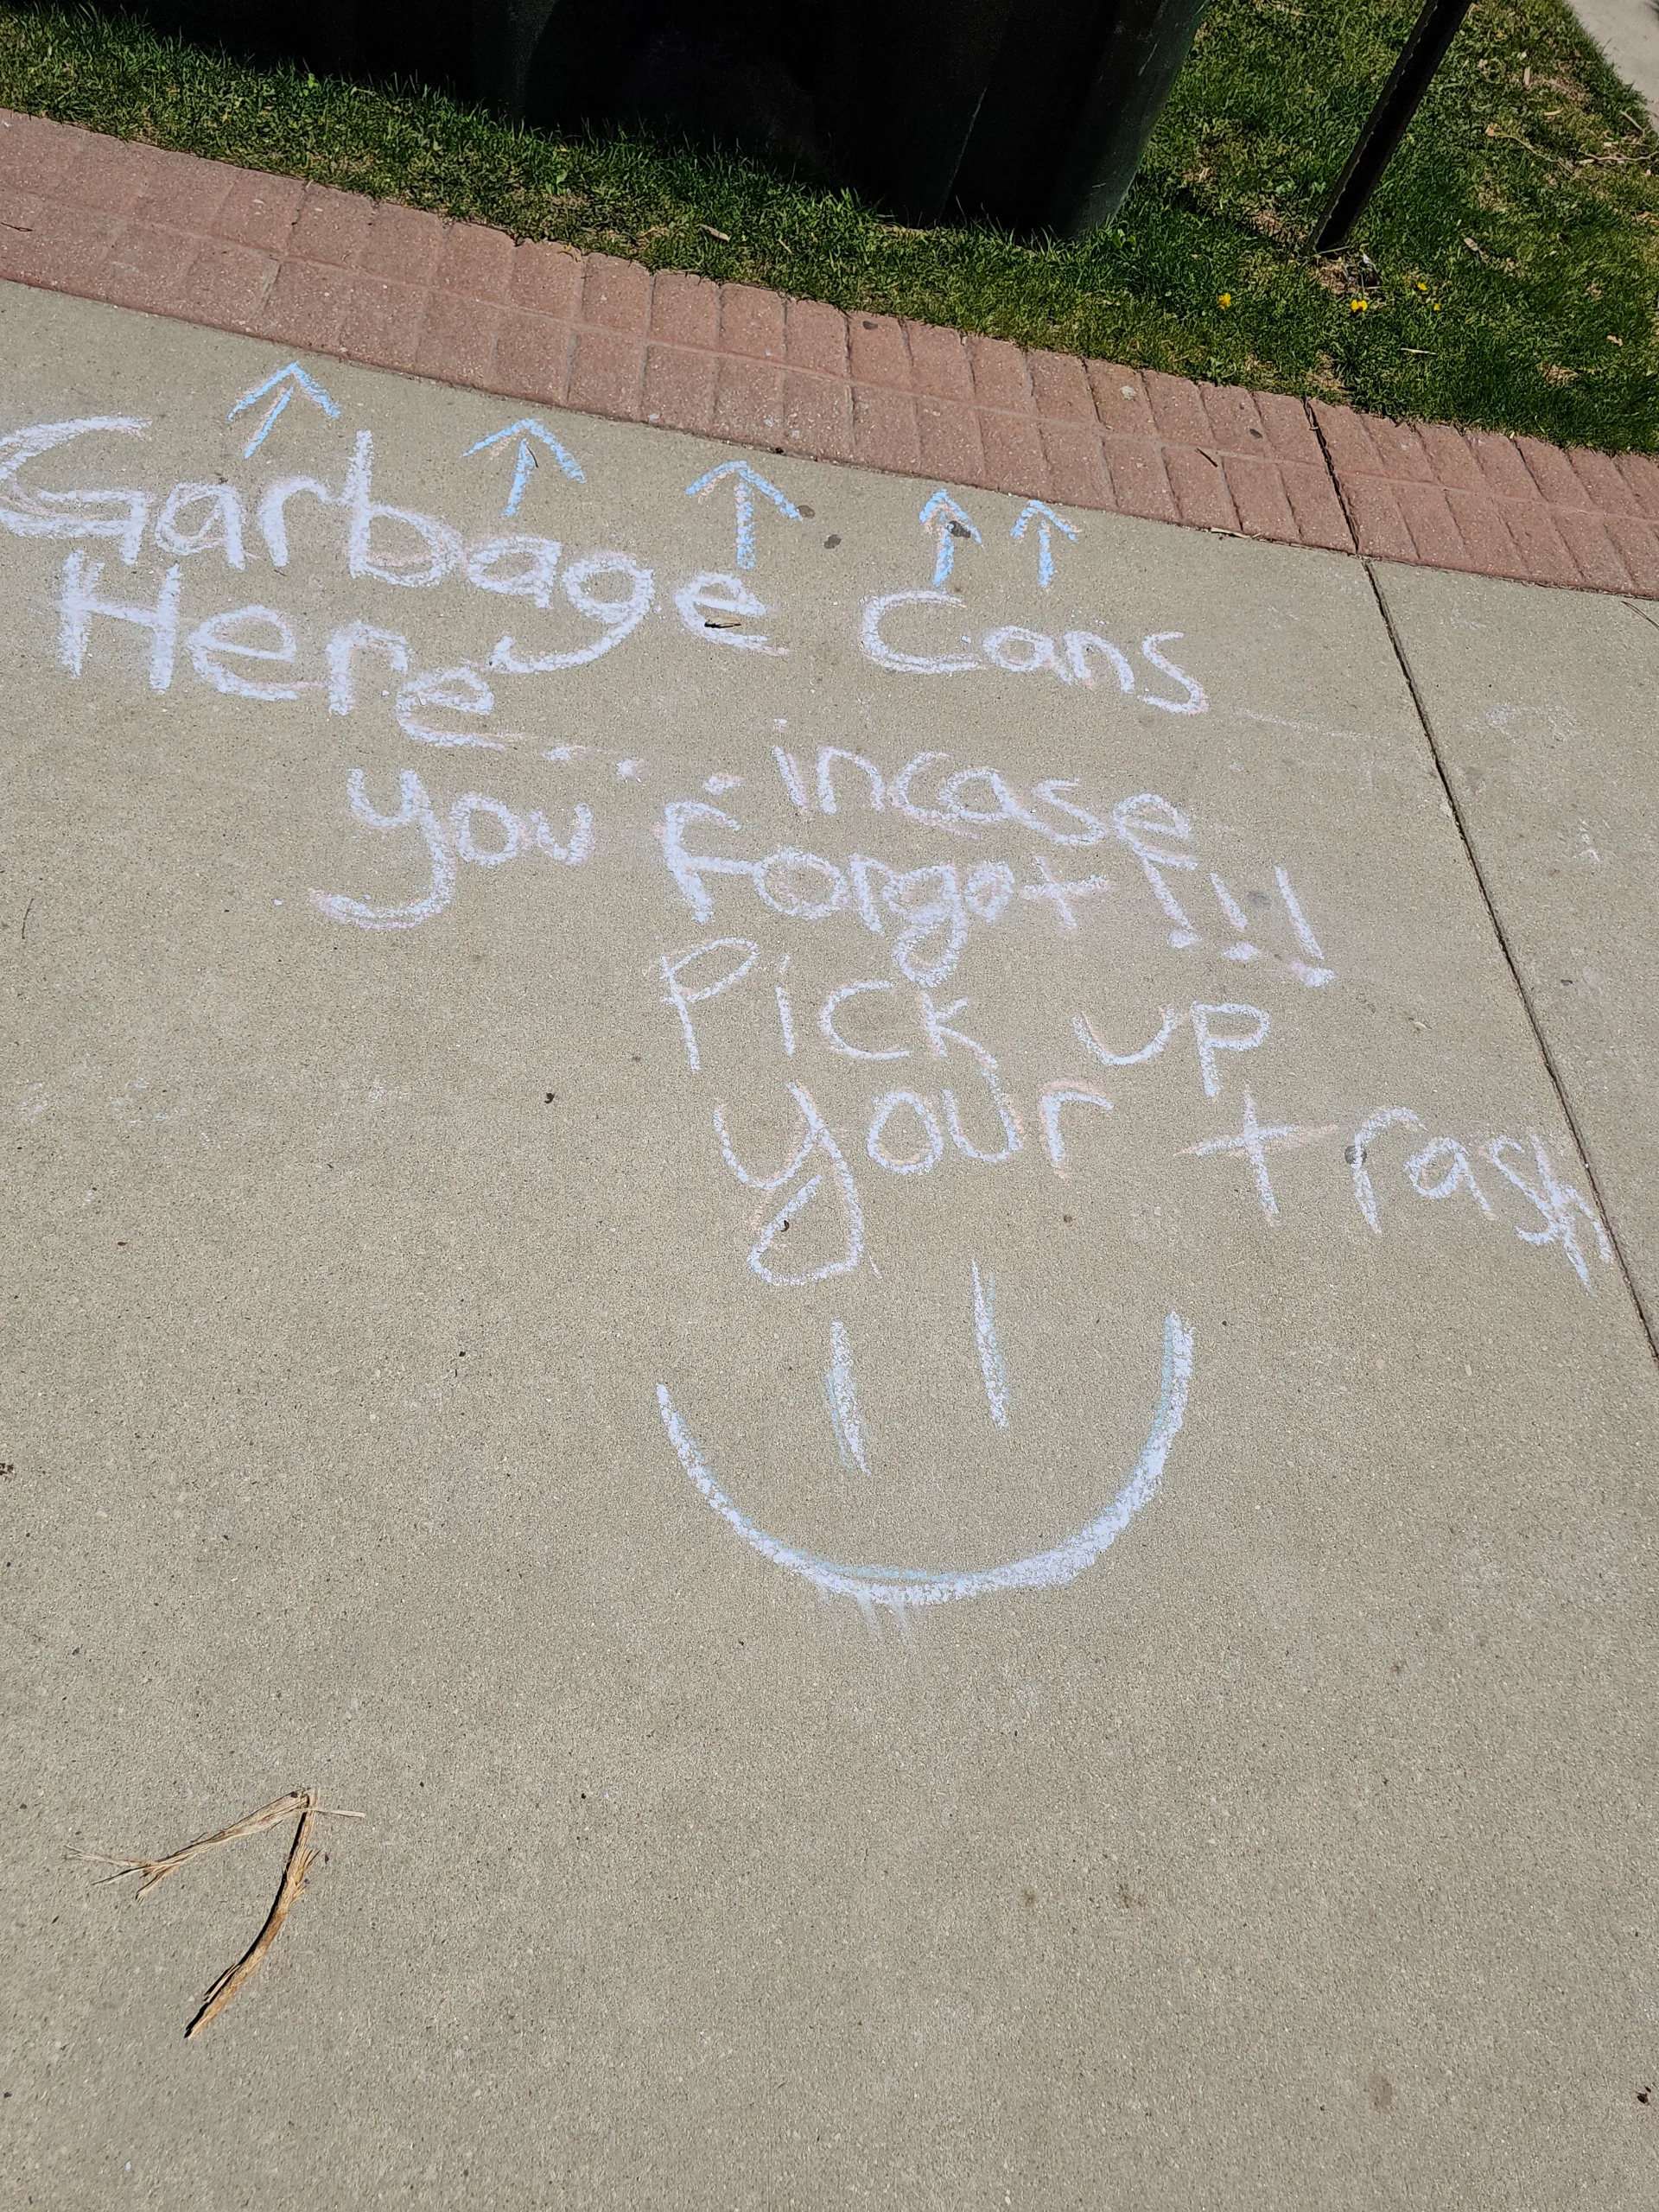 Garbage Cans
Here.... incase
you Forgot!!!
Pick up
your trash